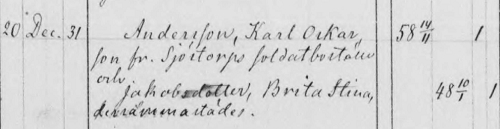 20 Dec. 31 Andersson, Karl Oskar, 58 14/11 1
son fr. Sjöstorps soldatboställe
och
Jakobsdotter, Brita Stina, 48 10/1 1
dersammastädes.